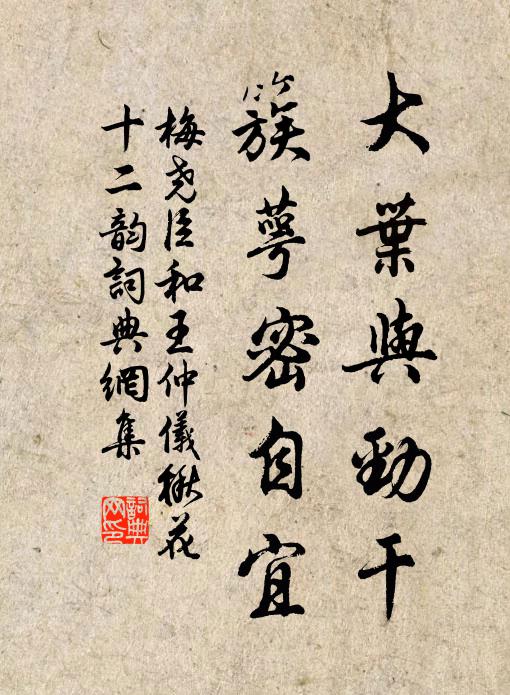 大葉與勁干
簇萼密自宜
梅堯臣和王仲儀楸花
十二韵詞典網集
詞典网印